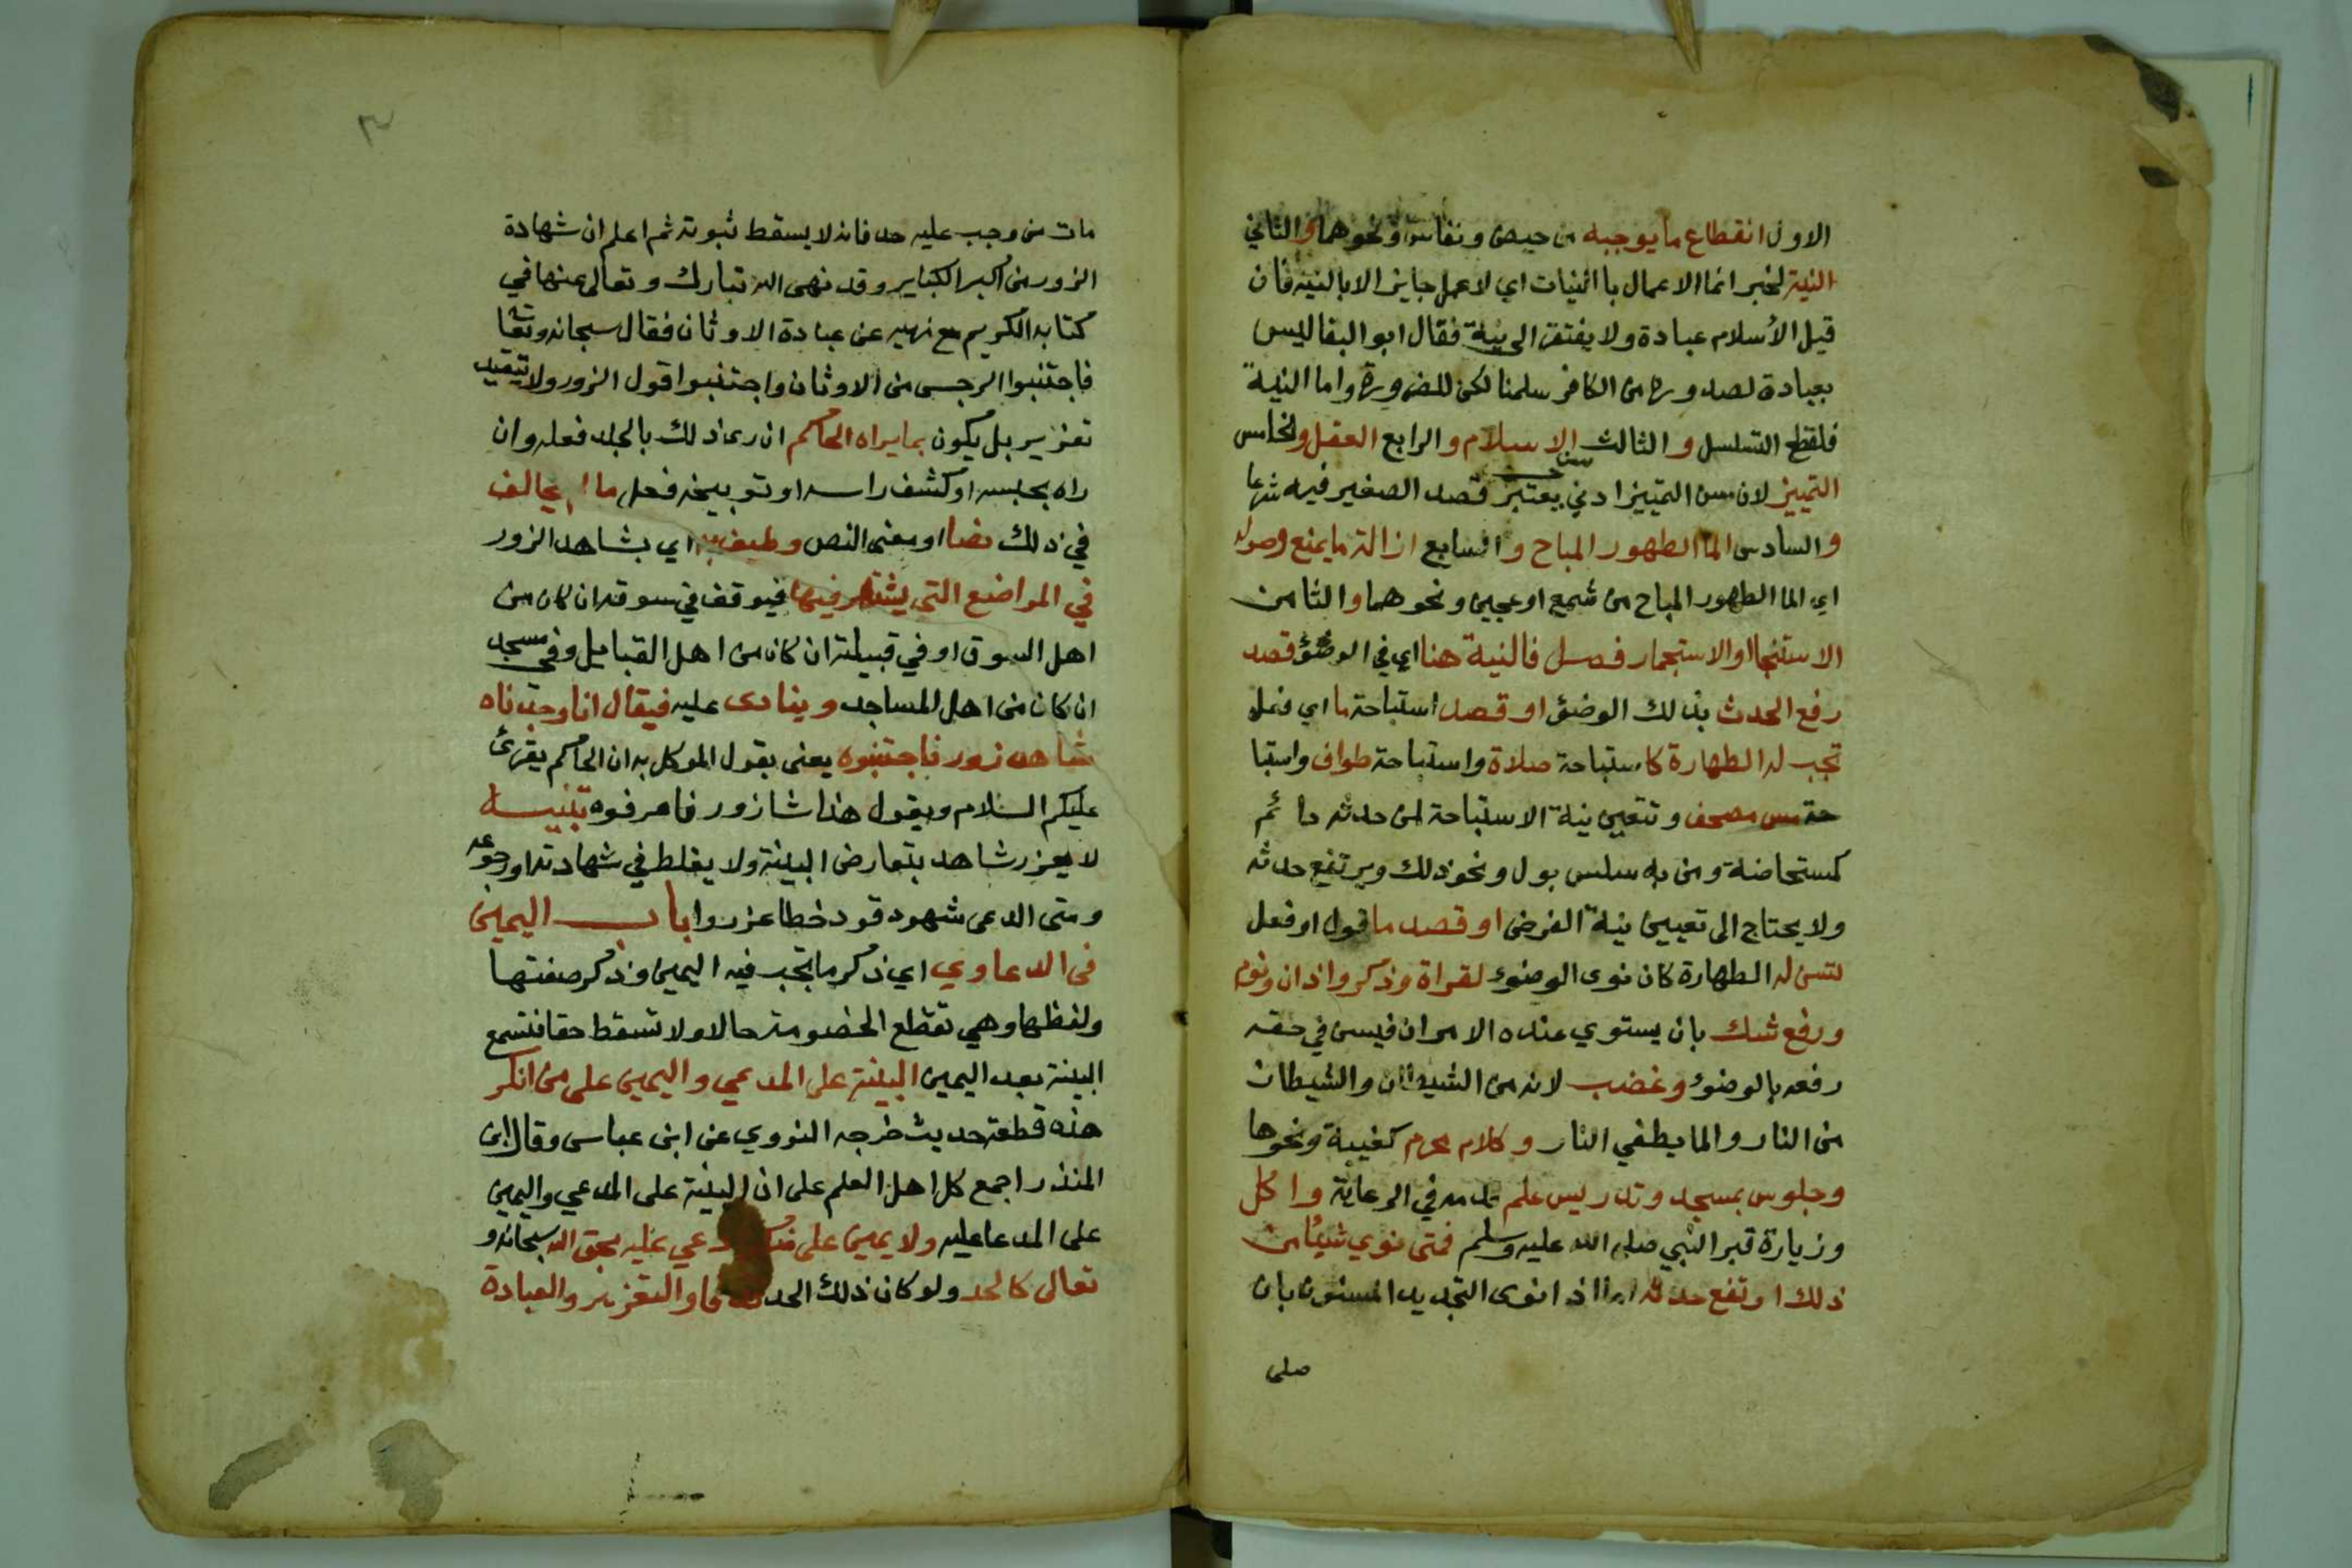 الاول انقطاع ما يوجبه من حيض ونفاس ونحوهما والثاني
النية لخبر انما الاعمال باالنيات اي لا عمل جايز الا بالنية فان
قيل الأسلام عبادة ولا يفتقر الى نية فقال ابو البقا ليس
بعبادة لصدوره من الكافر سلمنا لكن للضرورة واما النية
فلقطع التسلسل والثالث الاسلام والرابع العقل والخامس
التمييز لان سن التمييز ادني سن يعتبر قصد الصغير فيه شرعا
والسادس الما الطهور المباح والسابع ازالة ما يمنع وصوله
اي الما الطهور المباح من شمع او عجين ونحوهما والثامن
الاستنجا او الاستجمار فصل فالنية هنا اي في الوضؤ قصد
رفع الحدث بذلك الوضؤ او قصد استباحة ما اي فعل
تجب له الطهارة كاستباحة صلاة واستباحة طواف واستبا
حة مس مصحف وتتعين نية الاستباحة لمن حدثه دائم
كمستحاضة ومن به سلس بول ونحو ذلك ويرتفع حدثه
ولا يحتاج الى تعيين نية الفرض او قصد ما قول او فعل
تسن له الطهارة كان نوى الوضوء لقراة وذكر واذان ونوم
ورفع شك بان يستوي عنده الامران فيسن في حقه
رفعه بالوضوء وغضب لانه من الشيطان والشيطان
من النار والما يطفي النار وكلام محرم كغيبة ونحوها
وجلوس بمسجد وتدريس علم قدمه في الرعاية واكل
وزيارة قبر النبي صلى الله عليه وسلم فمتى نوي شيئا من
ذلك ارتفع حدثه اذا نوى التجديد المسنون بان
صلى
٣
مات من وجب عليه حد فانه لا يسقط ثبوته ثم اعلم ان شهادة
الزور من اكبر الكباير وقد نهى الله تبارك وتعالى عنها في
كتابه الكريم مع نهيه عن عبادة الاوثان فقال سبحانه وتعا
فاجتنبوا الرجس من الاوثان واجتنبوا قول الزور ولا يتقيد
تعزير بل يكون بما يراه الحاكم ان رى ذلك بالجلد فعله وان
راه بحبسه او كشف راسه او توبيخه فعل ما لم يخالف
في ذلك نصا او معنى النص وطيف به اي بشاهد الزور
في المواضع التي يشتهر فيها فيوقف في سوقه ان كان من
اهل السوق او في قبيلته ان كان من اهل القبايل وفي مسجد
ان كان من اهل المساجد وينادى عليه فيقال انا وجدناه
شاهد زور فاجتنبوه يعني يقول الموكل به ان الحاكم يقرئ
عليكم السلام ويقول هذا شا زور فاعرفوه تنبيه
لا يعزر شاهد بتعارض البينة ولا يغلط في شهادته او رجوعه
ومتى ادعى شهود قود خطا عزروا باب اليمين
في الدعاوي اي ذكر ما تجب فيه اليمين وذكر صفتها
ولفظها وهي تقطع الخصومة حالا ولا تسقط حقا فتسمع
البينة بعد اليمين البينة على المدعي واليمين على من انكر
هذه قطعة حديث خرجه النووي عن ابن عباس وقال ابن
المنذر اجمع كل اهل العلم على ان البينة على المدعي واليمين
على المدعا عليه ولا يمين على دعي عليه بحق الله سبحانه و
تعالى كالحد ولو كان ذلك الحد او التعزير والعبادة